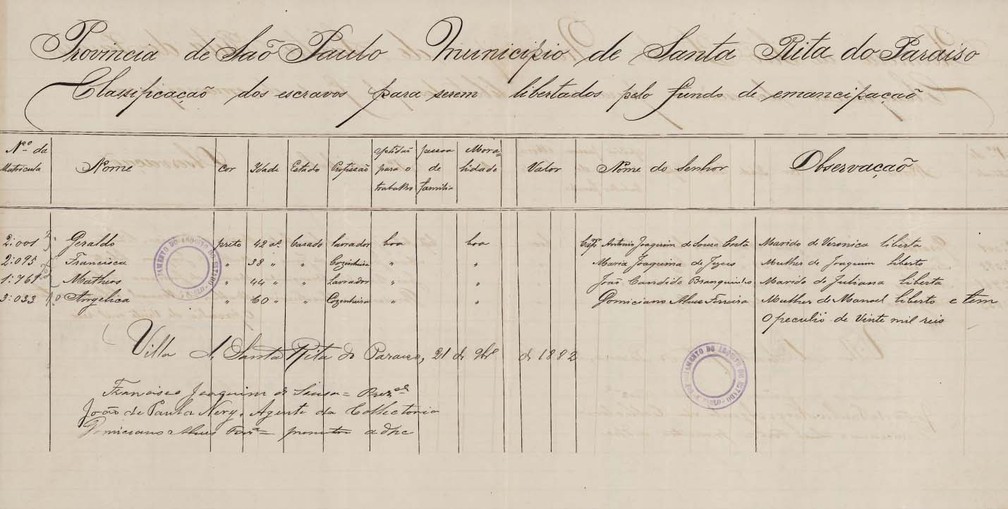 Provincia de São Paulo Municipio de Santa Rita do Paraiso
Classificação dos escravos para serem libertados pelo fundo de emancipação
Nº da Matricula Nome Cor Idade Estado Profissão Aptidão para o trabalho Pessoa de familia Moralidade Valor Nome do Senhor Observação
2:001 Geraldo preto 42 as. casado Lavrador boa boa Antonio Joaquim de Souza Costa Marido de Veronica liberta
2:095 Francisca " 38 " " Cozinheira " " Maria Joaquina de Jezus Mulher de Joaquim liberto
1:761 Matheos " 44 " " Lavrador " " João Candido Branquinho Marido de Juliana liberta
3:033 Angelica " 60 " " Cozinheira " " Domiciano Alves Ferreira Mulher de Manoel liberto e tem
o peculio de Vinte mil reis
Villa de Santa Rita do Paraiso, 21 de de 1882
Francisco Joaquim de Sousa
João de Paula Nery, Agente da Collectoria
Domiciano Alves promotor